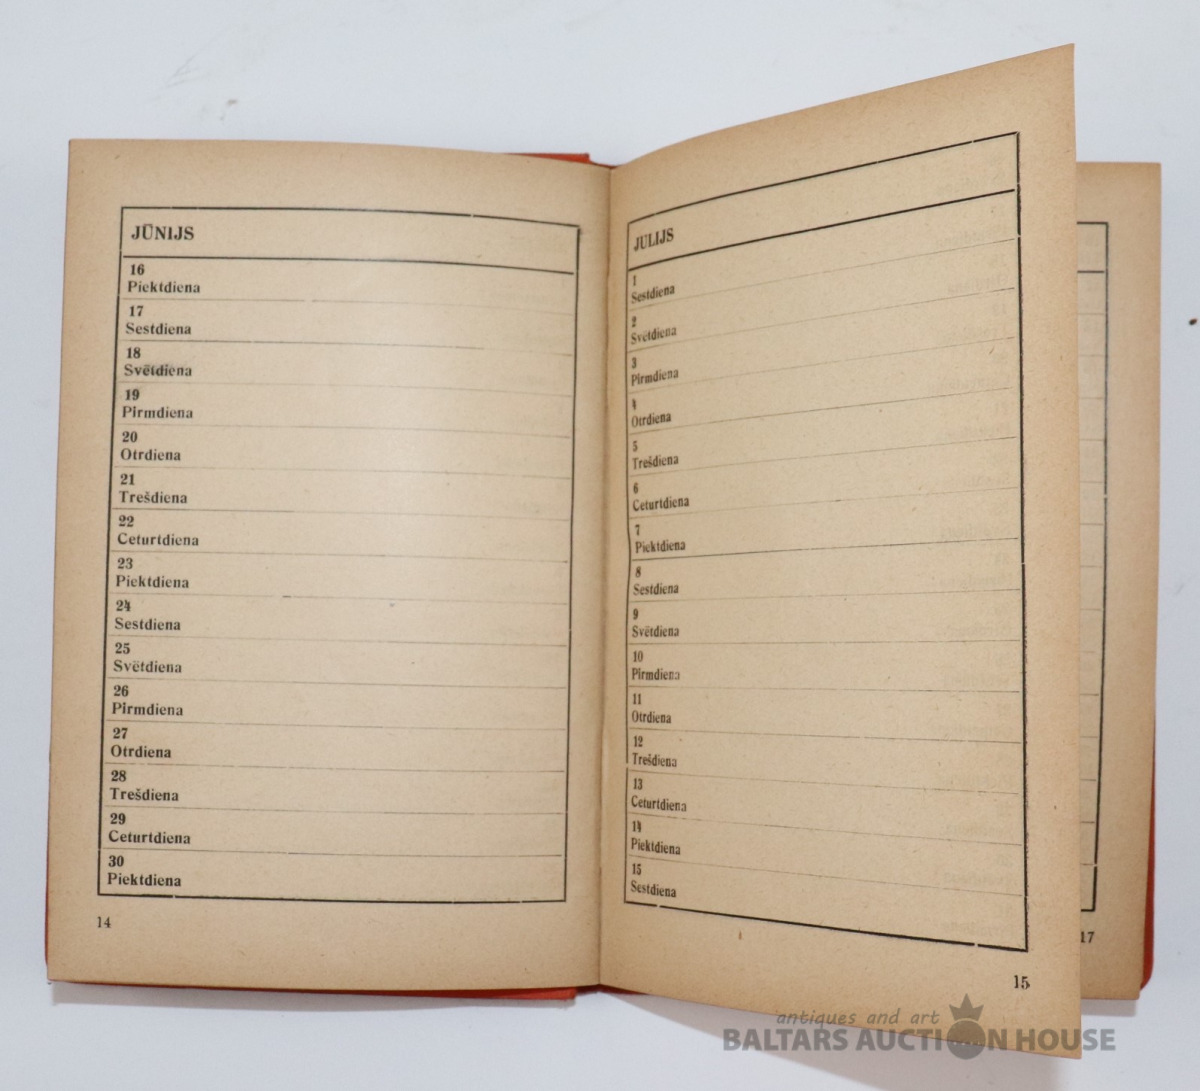 JŪNIJS
16
Piektdiena
17
Sestdiena
18
Svētdiena
19
Pirmdiena
20
Otrdiena
21
Trešdiena
22
Ceturtdiena
23
Piektdiena
24
Sestdiena
25
Svētdiena
26
Pirmdiena
27
Otrdiena
28
Trešdiena
29
Ceturtdiena
30
Piektdiena
14
JŪLIJS
1
Sestdiena
2
Svētdiena
3
Pirmdiena
4
Otrdiena
5
Trešdiena
6
Ceturtdiena
7
Piektdiena
8
Sestdiena
9
Svētdiena
10
Pirmdiena
11
Otrdiena
12
Trešdiena
13
Ceturtdiena
14
Piektdiena
15
Sestdiena
15
17
antiques and art
BALTARS AUCTION HOUSE